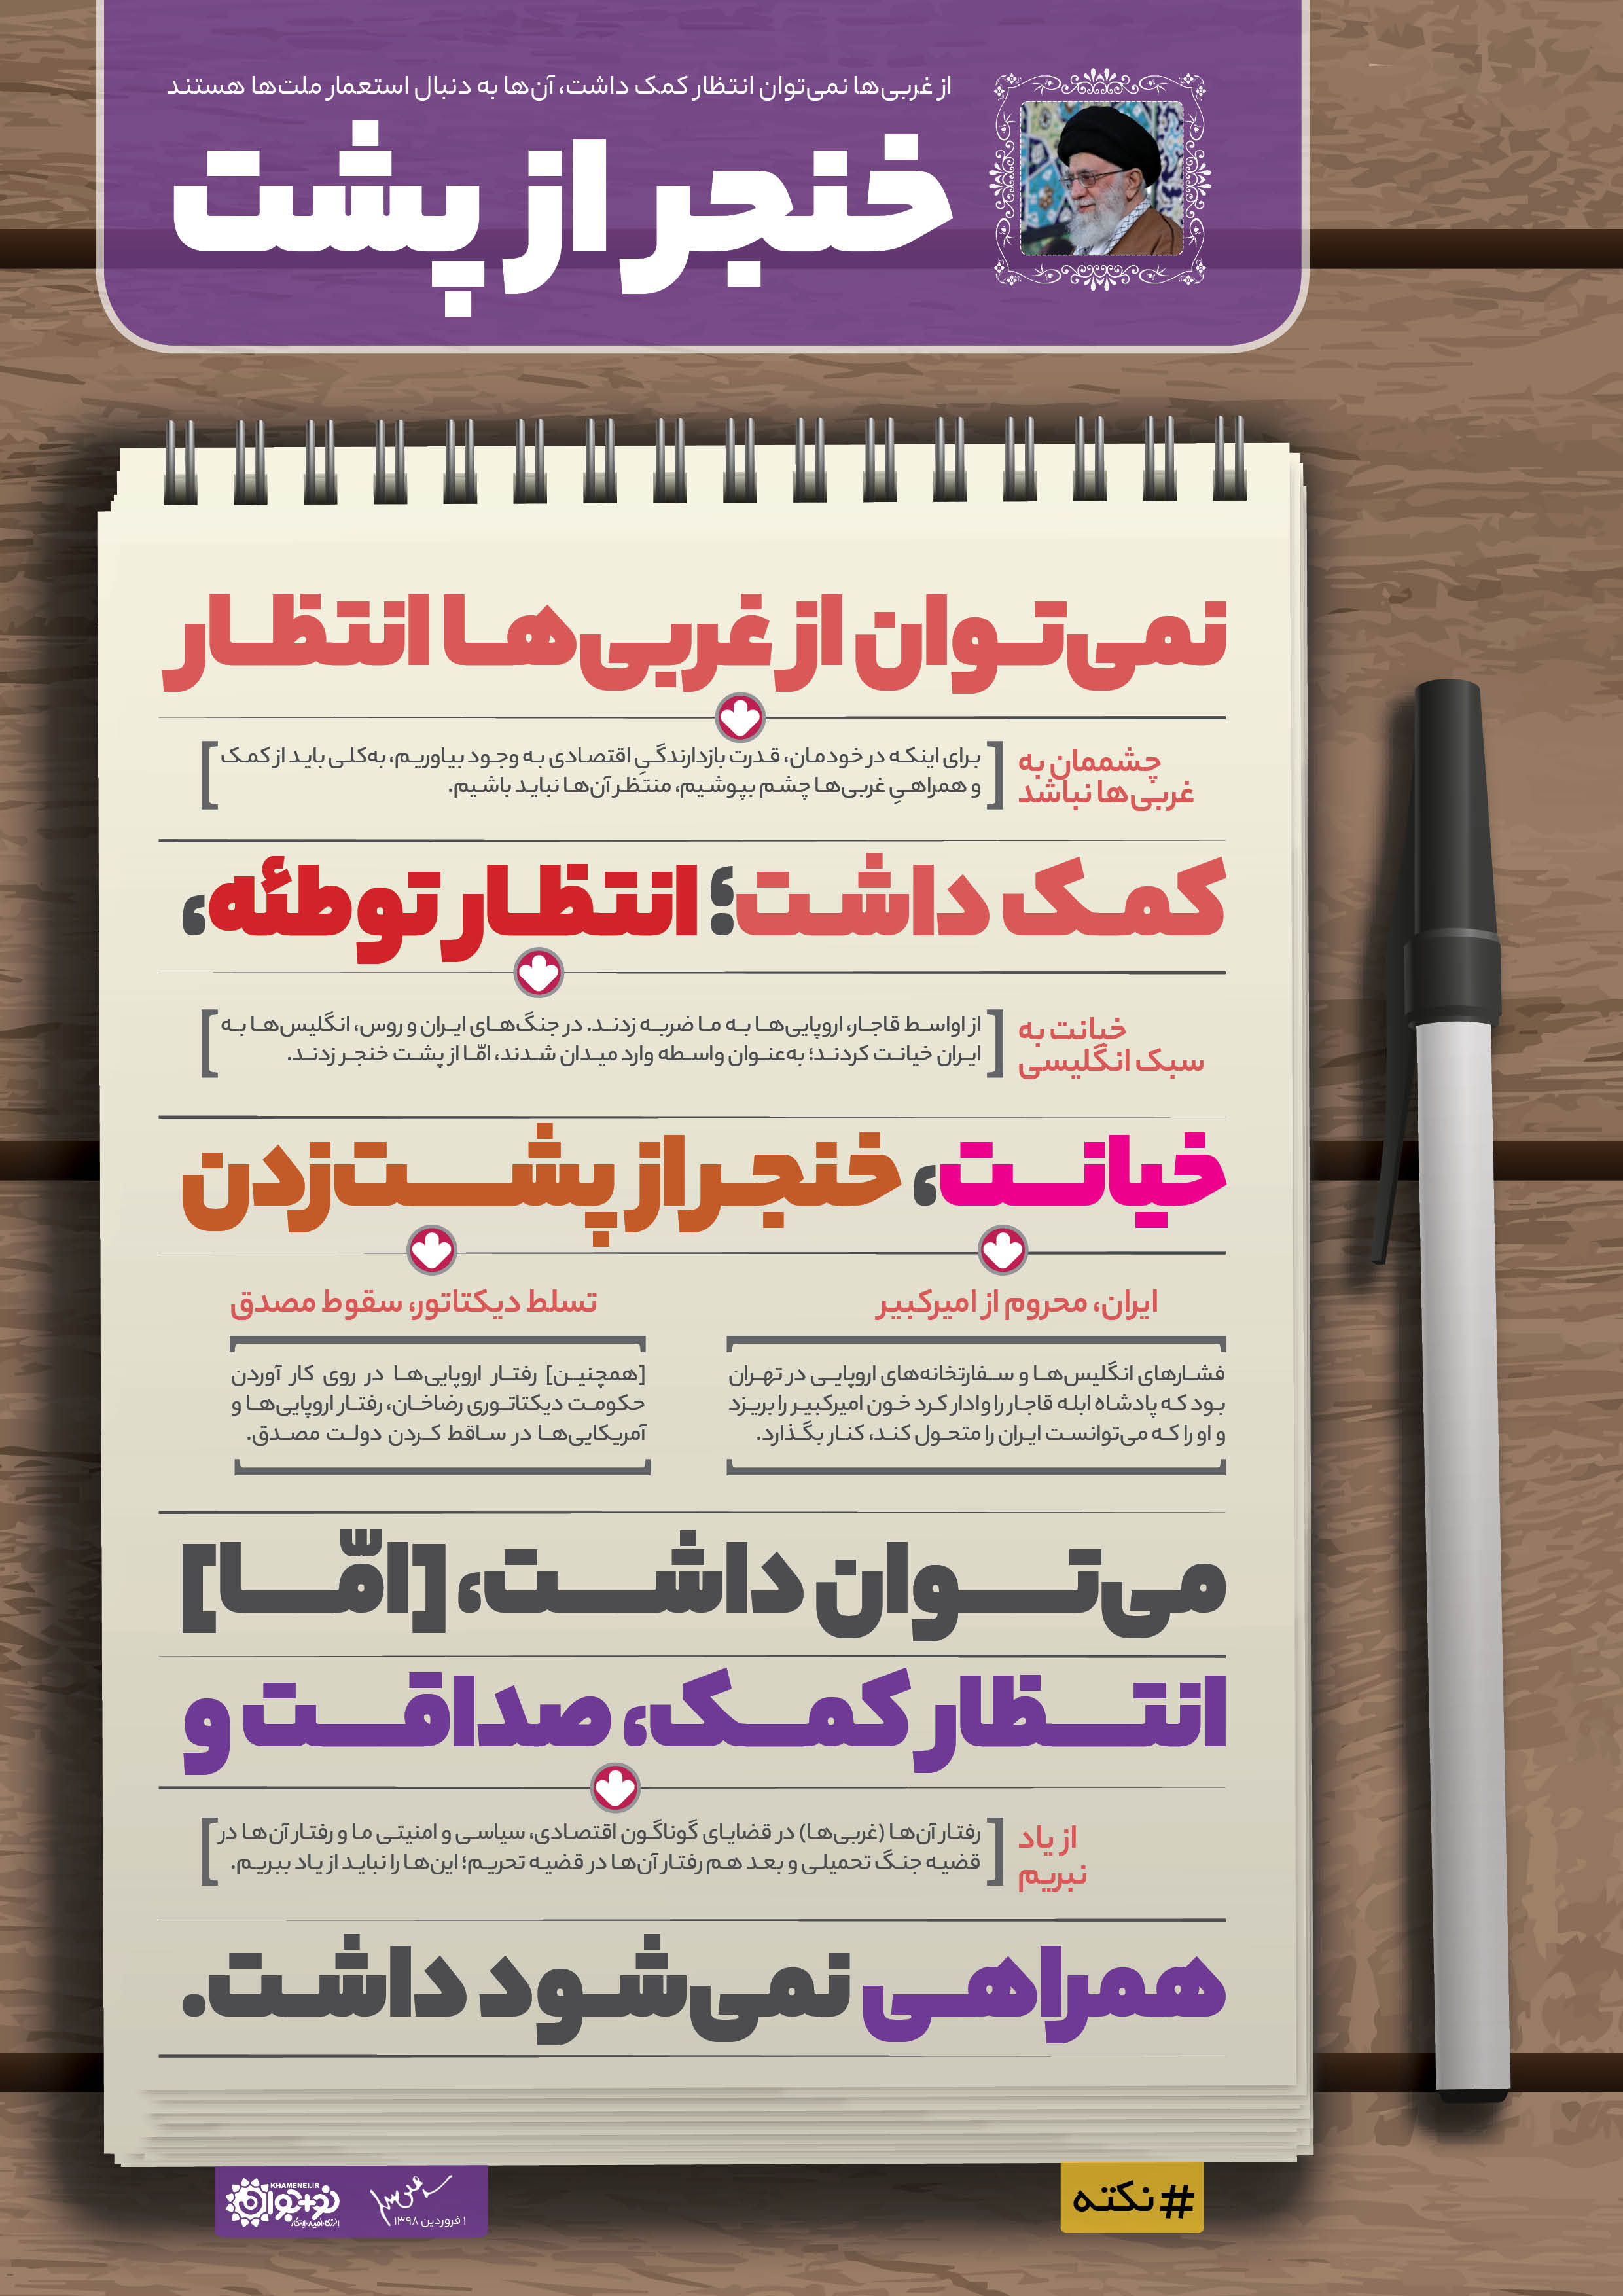 از غربی‌ها نمی‌توان انتظار کمک داشت، آن‌ها به دنبال استعمار ملت‌ها هستند
خنجر از پشت
نمی‌توان از غربی‌ها انتظار
چشممان به
غربی‌ها نباشد
[برای اینکه در خودمان، قدرت بازدارندگیِ اقتصادی به وجود بیاوریم، به‌کلی باید از کمک
و همراهیِ غربی‌ها چشم بپوشیم، منتظر آن‌ها نباید باشیم.]
کمک داشت؛ انتظار توطئه،
خیانت به
سبک انگلیسی
[از اواسط قاجار، اروپایی‌ها به ما ضربه زدند. در جنگ‌های ایران و روس، انگلیس‌ها به
ایران خیانت کردند؛ به‌عنوان واسطه وارد میدان شدند، امّا از پشت خنجر زدند.]
خیانت، خنجر از پشت‌زدن
ایران، محروم از امیرکبیر
فشارهای انگلیس‌ها و سفارتخانه‌های اروپایی در تهران
بود که پادشاه ابله قاجار را وادار کرد خون امیرکبیر را بریزد
و او را که می‌توانست ایران را متحول کند، کنار بگذارد.
تسلط دیکتاتور، سقوط مصدق
[همچنین] رفتار اروپایی‌ها در روی کار آوردن
حکومت دیکتاتوری رضاخان، رفتار اروپایی‌ها و
آمریکایی‌ها در ساقط کردن دولت مصدق.
می‌توان داشت، [امّا]
انتظار کمک، صداقت و
از یاد
نبریم
[رفتار آن‌ها (غربی‌ها) در قضایای گوناگون اقتصادی، سیاسی و امنیتی ما و رفتار آن‌ها در
قضیه جنگ تحمیلی و بعد هم رفتار آن‌ها در قضیه تحریم؛ این‌ها را نباید از یاد ببریم.]
همراهی نمی‌شود داشت.
#نکته
۱ فروردین ۱۳۹۸
KHAMENEI.IR
نو+جوان